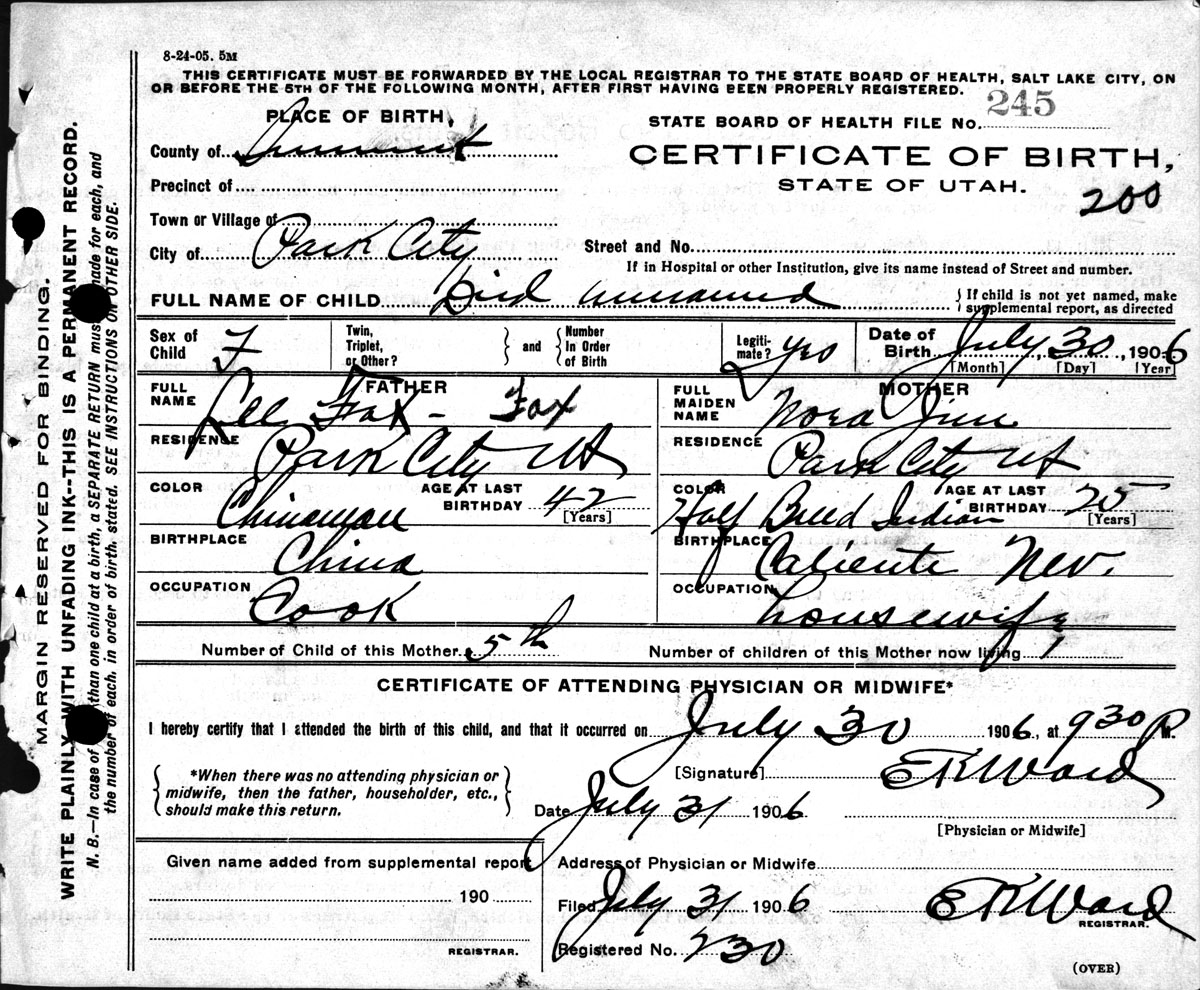 8-24-05. 5M
THIS CERTIFICATE MUST BE FORWARDED BY THE LOCAL REGISTRAR TO THE STATE BOARD OF HEALTH, SALT LAKE CITY, ON
OR BEFORE THE 5TH OF THE FOLLOWING MONTH, AFTER FIRST HAVING BEEN PROPERLY REGISTERED.
PLACE OF BIRTH,
STATE BOARD OF HEALTH FILE No. 245
County of Summit
CERTIFICATE OF BIRTH,
STATE OF UTAH.
200
Precinct of
Town or Village of
City of Park City
Street and No.
If in Hospital or other Institution, give its name instead of Street and number.
FULL NAME OF CHILD Died unnamed
{ If child is not yet named, make
supplemental report, as directed
Sex of Child F
Twin, Triplet, or Other?
and
Number In Order of Birth
Legiti-mate? Yes
Date of Birth July 30, 1906
[Month] [Day] [Year]
FATHER
FULL NAME Lee Fax - Fax
RESIDENCE Park City Ut
COLOR Chinaman
AGE AT LAST BIRTHDAY 42 [Years]
BIRTHPLACE China
OCCUPATION Cook
MOTHER
FULL MAIDEN NAME Nora Jim
RESIDENCE Park City Ut
COLOR Half Breed Indian
AGE AT LAST BIRTHDAY 25 [Years]
BIRTHPLACE Caliente Nev.
OCCUPATION Housewife
Number of Child of this Mother 5th
Number of children of this Mother now living 1
CERTIFICATE OF ATTENDING PHYSICIAN OR MIDWIFE*
I hereby certify that I attended the birth of this child, and that it occurred on July 30 1906, at 930 P. M.
{ *When there was no attending physician or
midwife, then the father, householder, etc.,
should make this return. }
[Signature] E K Ward
Date July 31 1906
[Physician or Midwife]
Given name added from supplemental report
190
REGISTRAR.
Address of Physician or Midwife
Filed July 31 1906 E K Ward
REGISTRAR.
Registered No. 230
(OVER)
MARGIN RESERVED FOR BINDING.
WRITE PLAINLY WITH UNFADING INK--THIS IS A PERMANENT RECORD.
N. B.—In case of than one child at a birth, a SEPARATE RETURN must made for each, and
the number of each, in order of birth, stated. SEE INSTRUCTIONS ON OTHER SIDE.